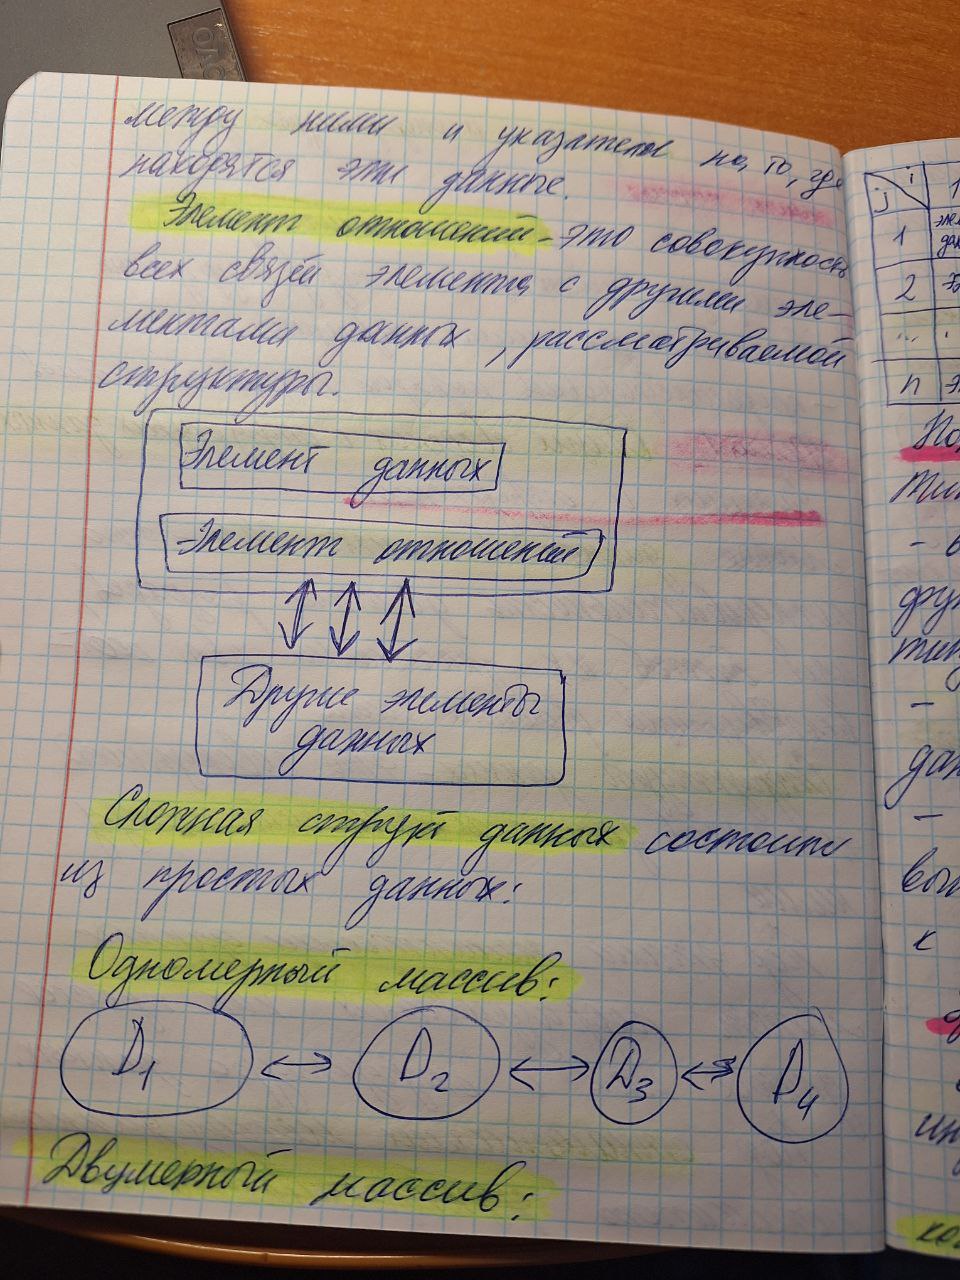 между ними и указатели на, то, где
находятся эти данные.
Элемент отношений - это совокупность
всех связей элемента с другими эле-
ментами данных, рассматриваемой
структуры.
Элемент данных
Элемент отношений
Другие элементы
данных
Сложная струк. данных состоит
из простых данных:
Одномерный массив:
D1 D2 D3 D4
Двумерный массив:
j i 1
1
2
...
n